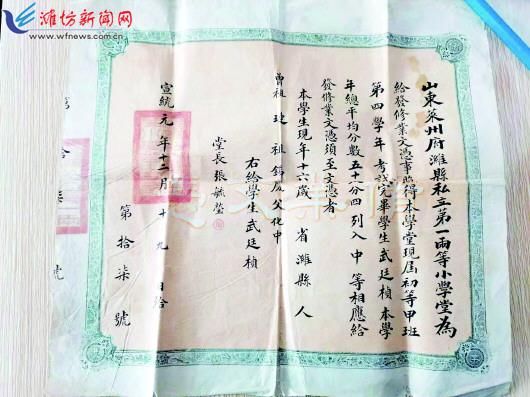 潍坊新闻网
www.wfnews.com.cn
山東萊州府濰縣私立第一兩等小學堂為
給發修業文憑事照得本學堂現屆初等甲班
第四學年考試完畢學生武廷楨本學
年總平均分數五十一分四列入中等相應給
發修業文憑須至文憑者
本學生現年十六歲 省濰縣人
曾祖 祖錫 父化中
右給學生武廷楨
堂長張毓瑩
宣統元年十二月十九日給
第拾柒號